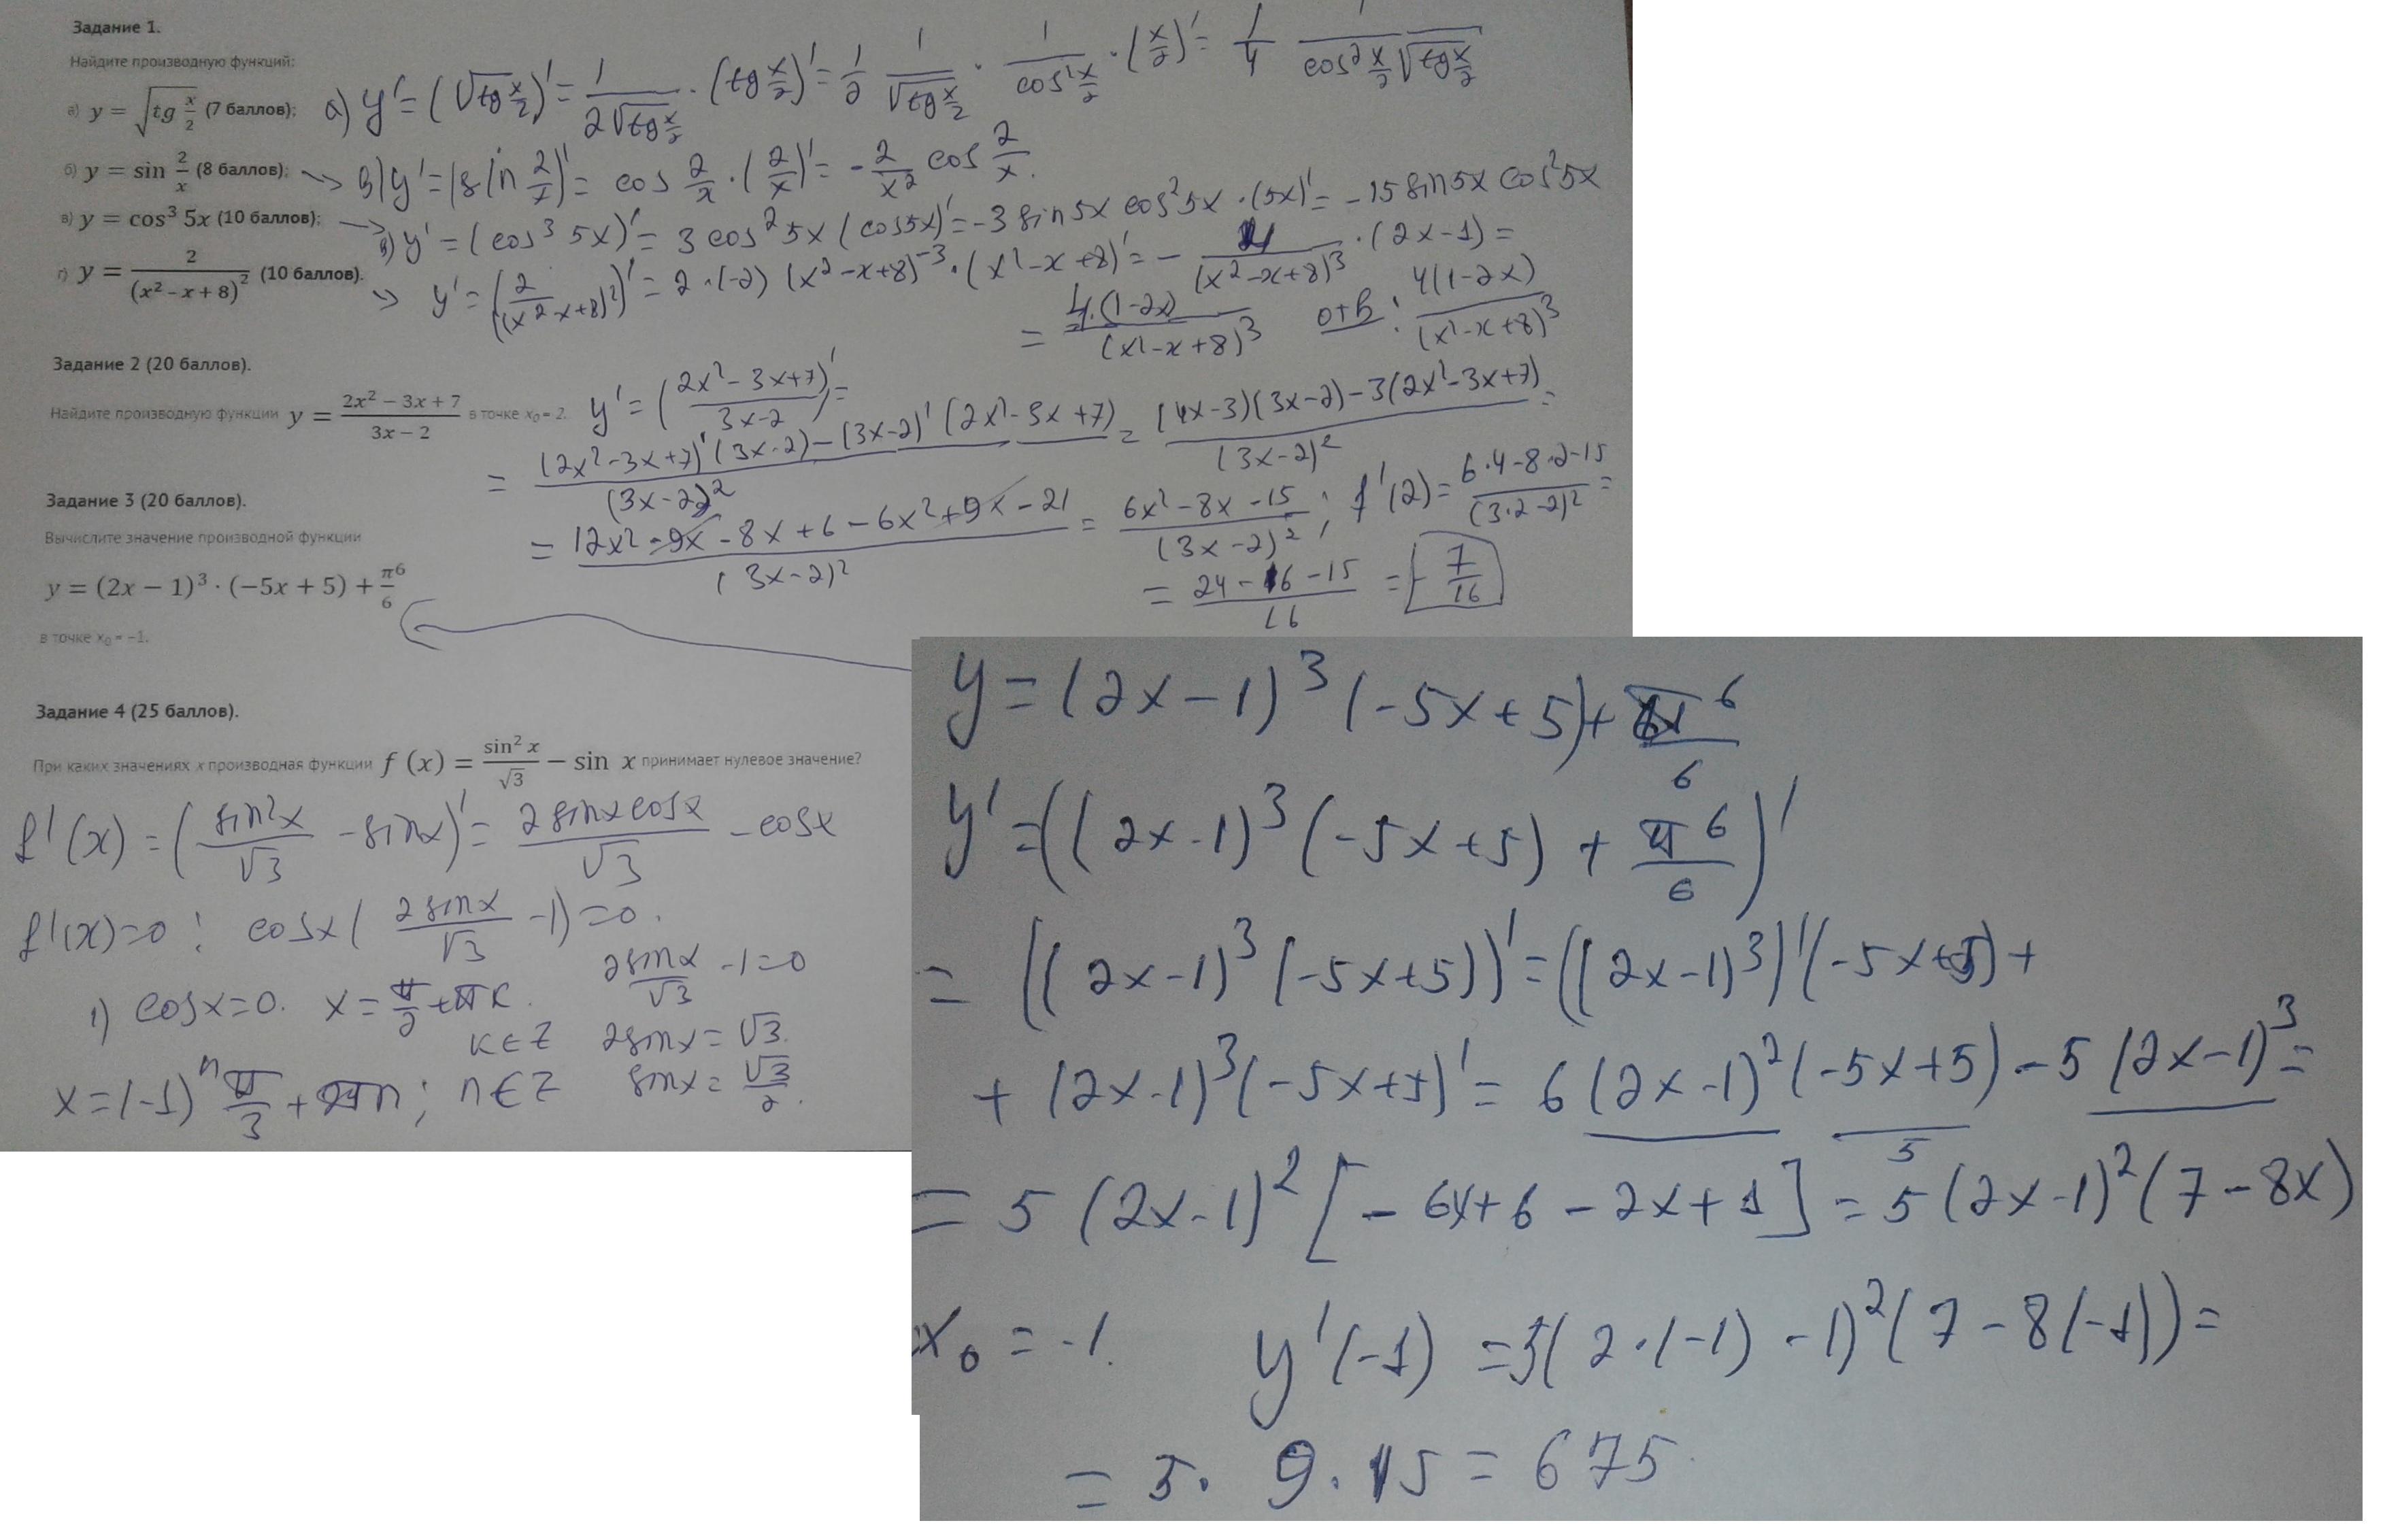 Задание 1.
Найдите производную функций:
а) y = √(tg x/2) (7 баллов);
а) y' = (√(tg x/2))' = 1/(2√(tg x/2)) · (tg x/2)' = 1/2 1/√(tg x/2) · 1/(cos² x/2) · (x/2)' = 1/4 1/(cos² x/2 √(tg x/2))
б) y = sin 2/x (8 баллов);
в) y' = (sin 2/x)' = cos 2/x · (2/x)' = - 2/x² cos 2/x.
в) y = cos³ 5x (10 баллов);
в) y' = (cos³ 5x)' = 3 cos² 5x (cos5x)' = -3 sin 5x cos² 5x · (5x)' = -15 sin5x cos² 5x
г) y = 2/(x² - x + 8)² (10 баллов).
y' = (2/((x² - x+8)²))' = 2 · (-2) (x² - x+8)⁻³ · (x² - x +8)' = - 4/(x² - x+8)³ · (2x-1) =
= 4·(1-2x)/(x² - x+8)³ отв: 4(1-2x)/(x² - x+8)³
Задание 2 (20 баллов).
Найдите производную функции y = (2x² - 3x + 7)/(3x - 2) в точке x₀ = 2.
y' = ((2x² - 3x+7)/(3x-2))' =
= ((2x² - 3x+7)' (3x-2) - (3x-2)' (2x² - 3x+7))/(3x-2)² = ((4x-3)(3x-2) - 3(2x² - 3x+7))/(3x-2)² =
= (12x² - 9x - 8x + 6 - 6x² + 9x - 21)/(3x-2)² = (6x² - 8x - 15)/(3x-2)² ; f'(2) = (6·4-8·2-15)/(3·2-2)² =
= (24-16-15)/16 = - 7/16
Задание 3 (20 баллов).
Вычислите значение производной функции
y = (2x - 1)³ · (-5x + 5) + π⁶/6
в точке x₀ = -1.
Задание 4 (25 баллов).
При каких значениях x производная функции f (x) = sin² x/√3 - sin x принимает нулевое значение?
f'(x) = (sin²x/√3 - sinx)' = 2sinxcosx/√3 - cosx
f'(x)=0 : cosx (2sinx/√3 - 1) = 0.
1) cosx=0. x = π/2 + πк. к∈Z
2sinx/√3 - 1=0
2sinx = √3.
sinx = √3/2.
x = (-1)ⁿ π/3 + πn ; n∈Z
y = (2x - 1)³ (-5x + 5) + π⁶/6
y' = ((2x-1)³ (-5x+5) + π⁶/6)'
= ((2x-1)³ (-5x+5))' = ((2x-1)³)' (-5x+5) +
+ (2x-1)³ (-5x+5)' = 6 (2x-1)² (-5x+5) - 5 (2x-1)³ =
5
= 5 (2x-1)² [-6x+6 - 2x+1] = 5 (2x-1)² (7-8x)
x₀ = -1. y'(-1) = 5(2·(-1) - 1)² (7 - 8(-1)) =
= 5 · 9 · 15 = 675.